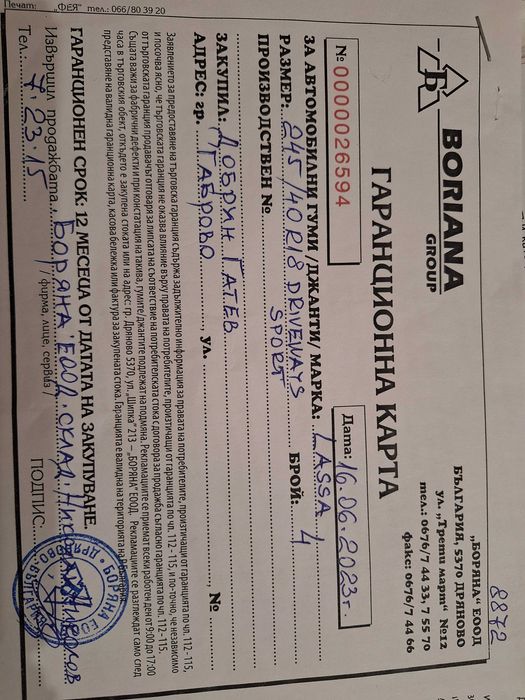 8872
BORIANA
GROUP
„БОРЯНА" ЕООД
БЪЛГАРИЯ, 5370 ДРЯНОВО
ул. „Трети март" №12
тел.: 0676/7 44 33, 7 55 70
факс: 0676/7 44 66
ГАРАНЦИОННА КАРТА
№ 0000026594
Дата: 16.06.2023г.
ЗА АВТОМОБИЛНИ ГУМИ /ДЖАНТИ/ МАРКА: LASSA
РАЗМЕР: 245/40 R18 DRIVEWAYS БРОЙ: 4
SPORT
ПРОИЗВОДСТВЕН №
ЗАКУПИЛ: ДОБРИН ГАТЕВ
АДРЕС: гр. ГАБРОВО, ул. , №
Заявлението за предоставяне на търговска гаранция съдържа задължително информация за правата на потребителите, произтичащи от гаранцията по чл. 112 - 115,
и посочва ясно, че търговската гаранция не оказва влияние върху правата на потребителите, произтичащи от гаранцията по чл. 112 - 115, и по-точно, че независимо
от търговската гаранция продавачът отговаря за липсата на съответствие на потребителската стока с договора за продажба съгласно гаранцията по чл. 112 - 115.
Същата важи за фабрични дефекти и при констатация на такива, гумите/джантите подлежат на подмяна. Рекламациите се приемат всеки работен ден от 9:00 до 17:00
часа в търговския обект, откъдето е закупена стоката или на адрес: гр. Дряново 5370, ул. „Шипка" 213 – „БОРЯНА" ЕООД. Рекламациите се разглеждат само след
представяне на валидна гаранционна карта, касова бележка или фактура за закупената стока. Гаранцията е валидна на територията на България.
ГАРАНЦИОНЕН СРОК: 12 МЕСЕЦА ОТ ДАТАТА НА ЗАКУПУВАНЕ.
Извършил продажбата: БОРЯНА ЕООД
/фирма, лице, сервиз/
Тел.: 7.23.15 ПОДПИС:
БОРЯНА ЕООД
Печат: „ФЕЯ" тел.: 066/80 39 20